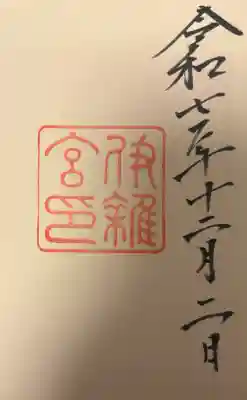 令和七年十二月二日
伊雑宮印